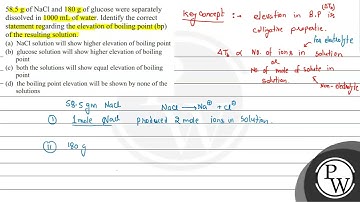 58.5 g of NaCl and 180 g of glucose were separately
dissolved in 1000 mL of water. Identify the correct
statement regarding the elevation of boiling point (bp)
of the resulting solution.
(a) NaCl solution will show higher elevation of boiling point
(b) glucose solution will show higher elevation of boiling
point
(c) both the solutions will show equal elevation of boiling
point
(d) the boiling point elevation will be shown by none of the
solutions
Key concept :- elevation in B.P is (ΔTb)
colligative properties.
for electrolyte
ΔTb ∝ No. of ions in solution
or
No of mole of solute in
solution.
Non-electrolyte
58.5 gm NaCl
NaCl → Na⊕ + Cl⊖
(i) 1 mole NaCl produced 2 mole ions in solution.
(ii) 180 g
PW